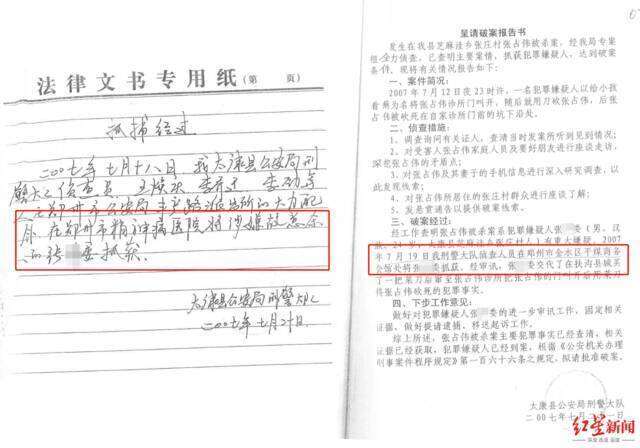 法律文书专用纸(第 页)
抓捕经过
二〇〇七年七月十八日 我太康县公安局刑
警大队侦查员
在郑州市公安局
在郑州市精神病医院将涉嫌故意杀
委抓获
太康县公安局刑警大队
二〇〇七年七月
呈请破案报告书
发生在我县芝麻洼乡张庄村张占伟被杀案,经我局专案
组全力侦查,已查明主要案情,抓获犯罪嫌疑人,达到破案
条件,现将有关情况报告如下:
一、案件简况:
2007年7月12日夜23时许,一名犯罪嫌疑人以给小孩
看病为名将张占伟诊所门叫开,随后就用刀砍张占伟,后张
占伟被砍死在自家诊所门前的坑下沿处。
二、侦查措施:
1、调查询问有关证人,查清当时发案所听到见到情况;
2、对受害人张占伟家庭人员及要好朋友进行座谈走访,
深挖张占伟的矛盾点;
3、对张占伟及其妻子的手机信息进行深入研究调查,以
此发现线索;
4、对张占伟所居住的村庄群众进行座谈了解;
5、发悬赏通告以提供破案线索。
三、破案经过:
经工作查明张占伟被杀案系犯罪嫌疑人张 委(男,汉
族,24岁,太康县芝麻洼乡张庄村人)有重大嫌疑,2007
年7月19日我刑警大队侦查人员在郑州市金水区平煤商务
会馆处将张 委抓获。经审讯,张 委交代了在扶沟县城买
了一把菜刀后窜至张占伟诊所把张占伟的门叫开后用菜刀
将张占伟砍死的犯罪事实。
四、下步工作意见:
做好对犯罪嫌疑人张 委的进一步审讯工作,固定相关
证据,做好提请逮捕、移送起诉工作。
综上所述,张占伟被杀案主要犯罪事实已经查清,相关
证据已经获取,犯罪嫌疑人已经到案,根据《公安机关办理
刑事案件程序规定》第一百六十六条之规定,拟请批准破案。
太康县公安局刑警大队
二00七年七月二十一日
红星新闻